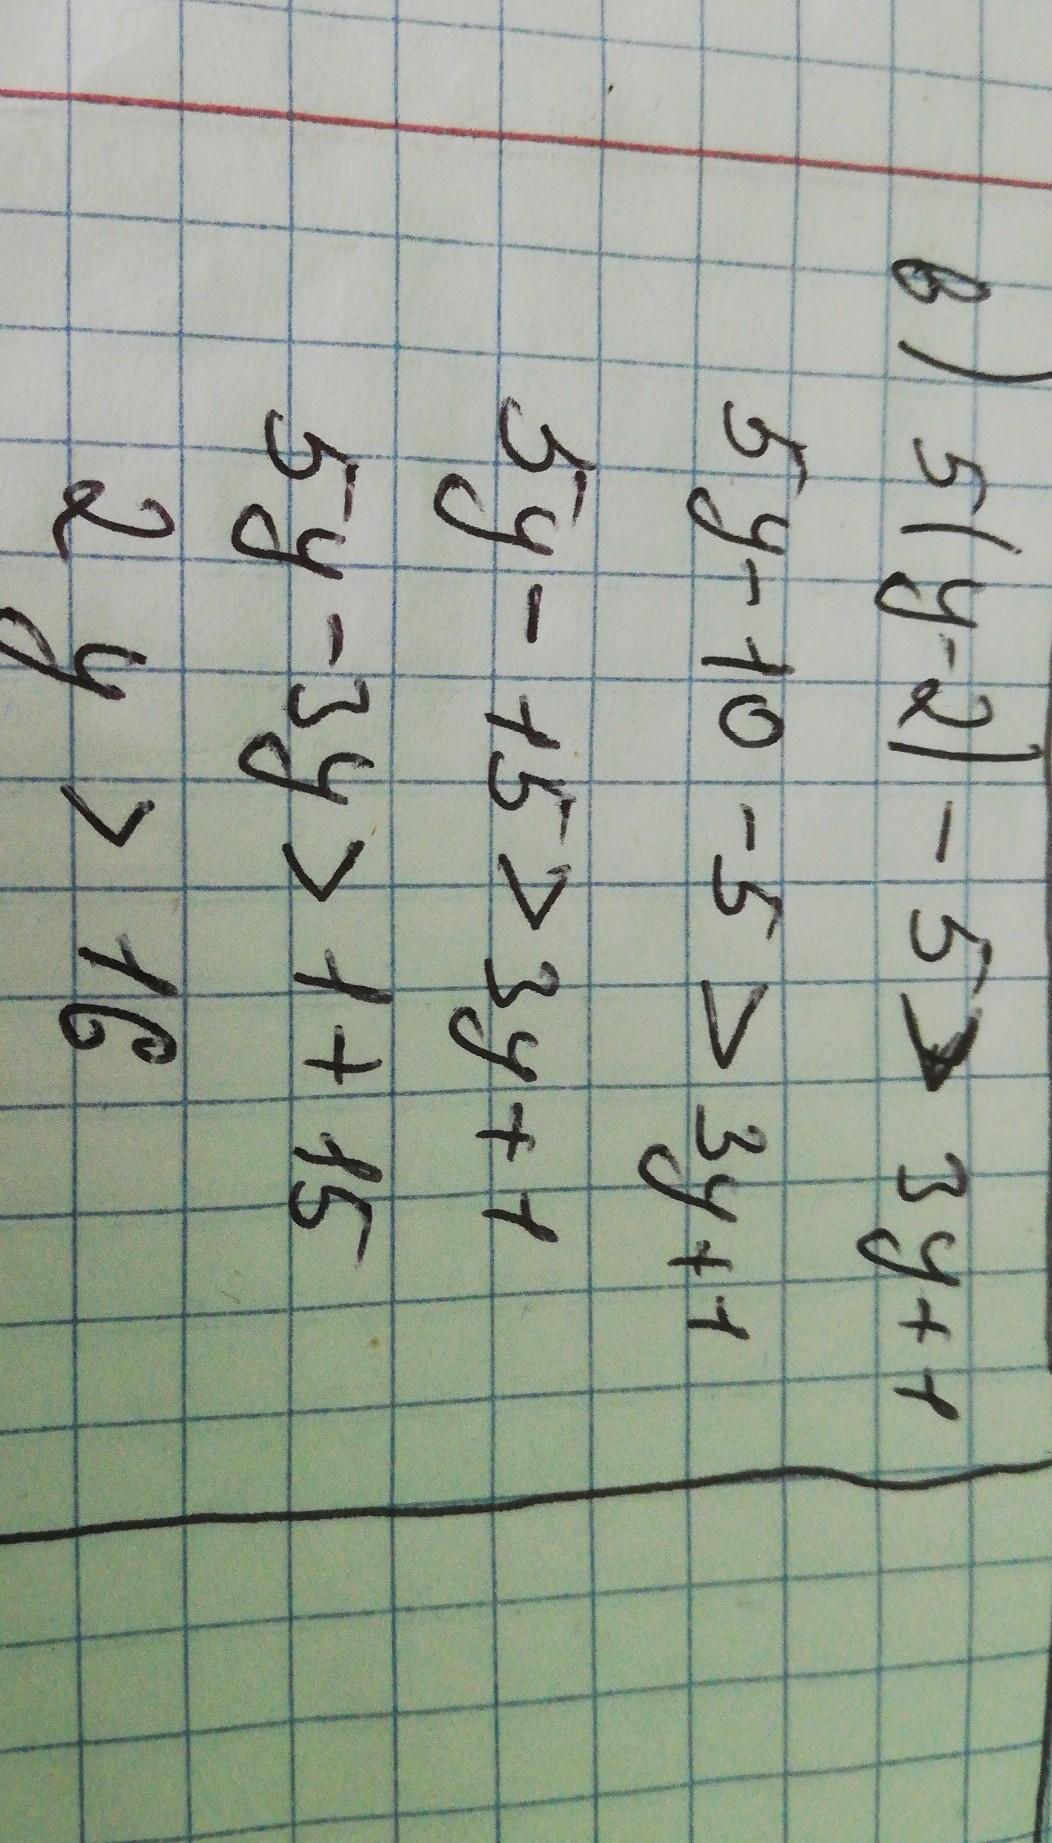 в) 5(y-2)-5>3y+1
5y-10-5>3y+1
5y-15>3y+1
5y-3y>1+15
2y>16